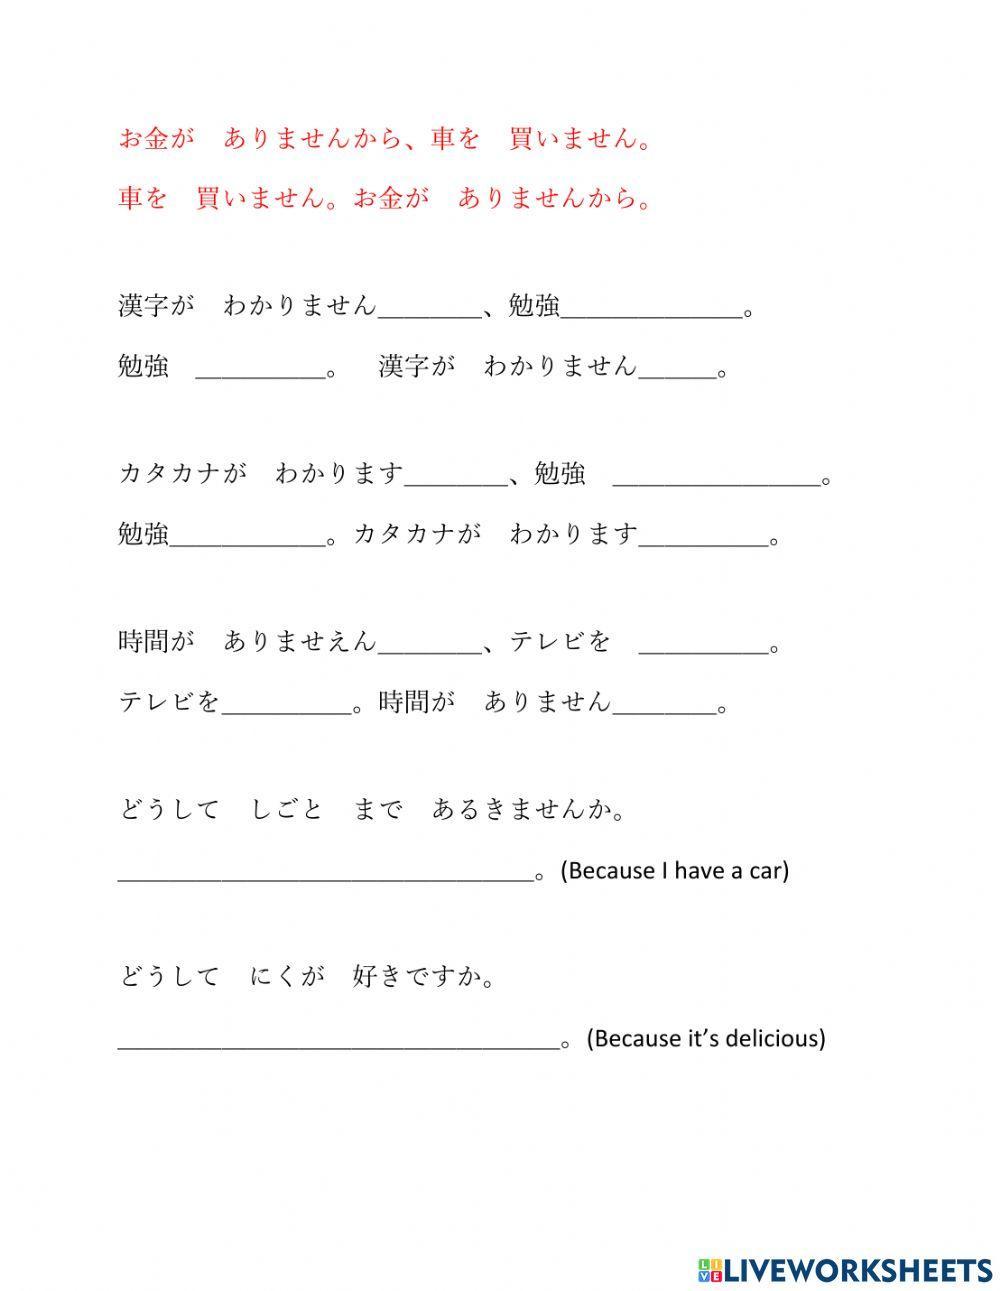 お金が　ありませんから、車を　買いません。
車を　買いません。お金が　ありませんから。
漢字が　わかりません________、勉強______________。
勉強　__________。　漢字が　わかりません______。
カタカナが　わかります________、勉強　________________。
勉強____________。カタカナが　わかります__________。
時間が　ありませえん________、テレビを　__________。
テレビを__________。時間が　ありません________。
どうして　しごと　まで　あるきませんか。
________________________________。(Because I have a car)
どうして　にくが　好きですか。
__________________________________。(Because it’s delicious)
LIVEWORKSHEETS